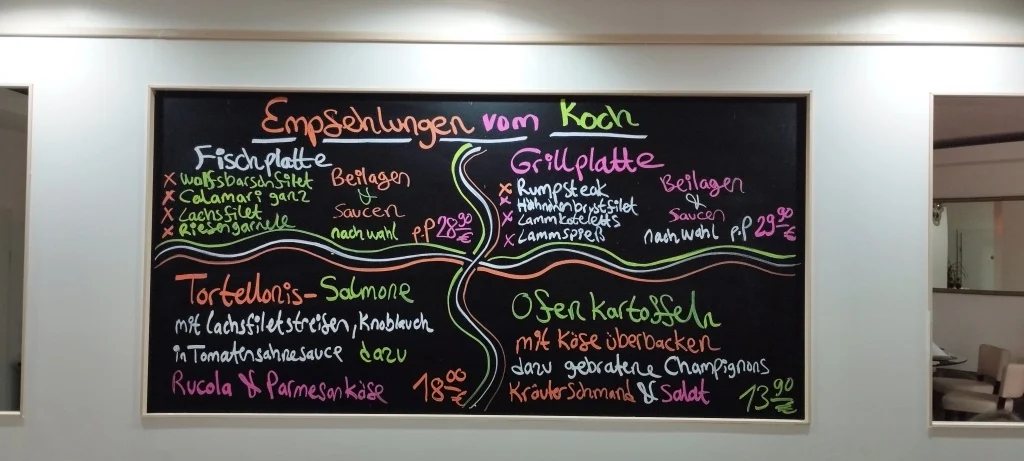 Empfehlungen vom Koch
Fischplatte
x Wolfsbarschfilet
x Calamari ganz
x Lachsfilet
x Riesengarnele
Beilagen
&
Saucen
nach wahl p.P 28⁹⁰ €
Grillplatte
x Rumpsteak
x Hähnchenbrustfilet
x Lammkoteletts
x Lammspieß
Beilagen
&
Saucen
nach wahl p.P 29⁹⁰ €
Tortellonis-Salmone
mit Lachsfiletstreifen, Knoblauch
in Tomatensahnesauce dazu
Rucola & Parmesankäse 18⁰⁰ €
Ofenkartoffeln
mit Käse überbacken
dazu gebratene Champignons
Kräuterschmand & Salat 13⁹⁰ €